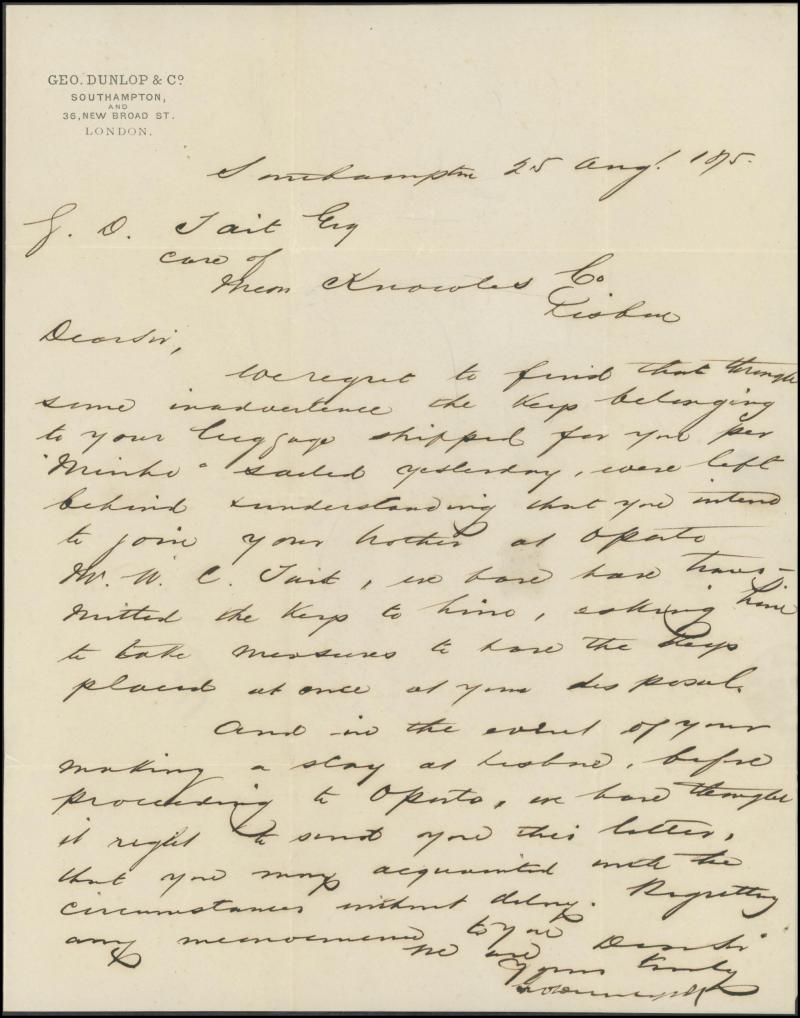 GEO. DUNLOP & Co.
SOUTHAMPTON,
AND
36, NEW BROAD ST.
LONDON.
Southampton 25 Augt. 1875.
G. D. Tait Esq
care of
Messrs Knowles Co
Lisbon
Dear Sir,
We regret to find that through
some inadvertence the keys belonging
to your luggage shipped for you per
"Minho" sailed yesterday, were left
behind & understanding that you intend
to join your brother at Oporto
Mr. W. C. Tait, we have have trans-
mitted the keys to him, asking him
to take measures to have the keys
placed at once at your disposal.
And in the event of your
making a stay at Lisbon, before
proceeding to Oporto, we have thought
it right to send you this letter,
that you may acquainted with the
circumstances without delay. Regretting
any inconvenience to you
We are Dear Sir
Yours truly